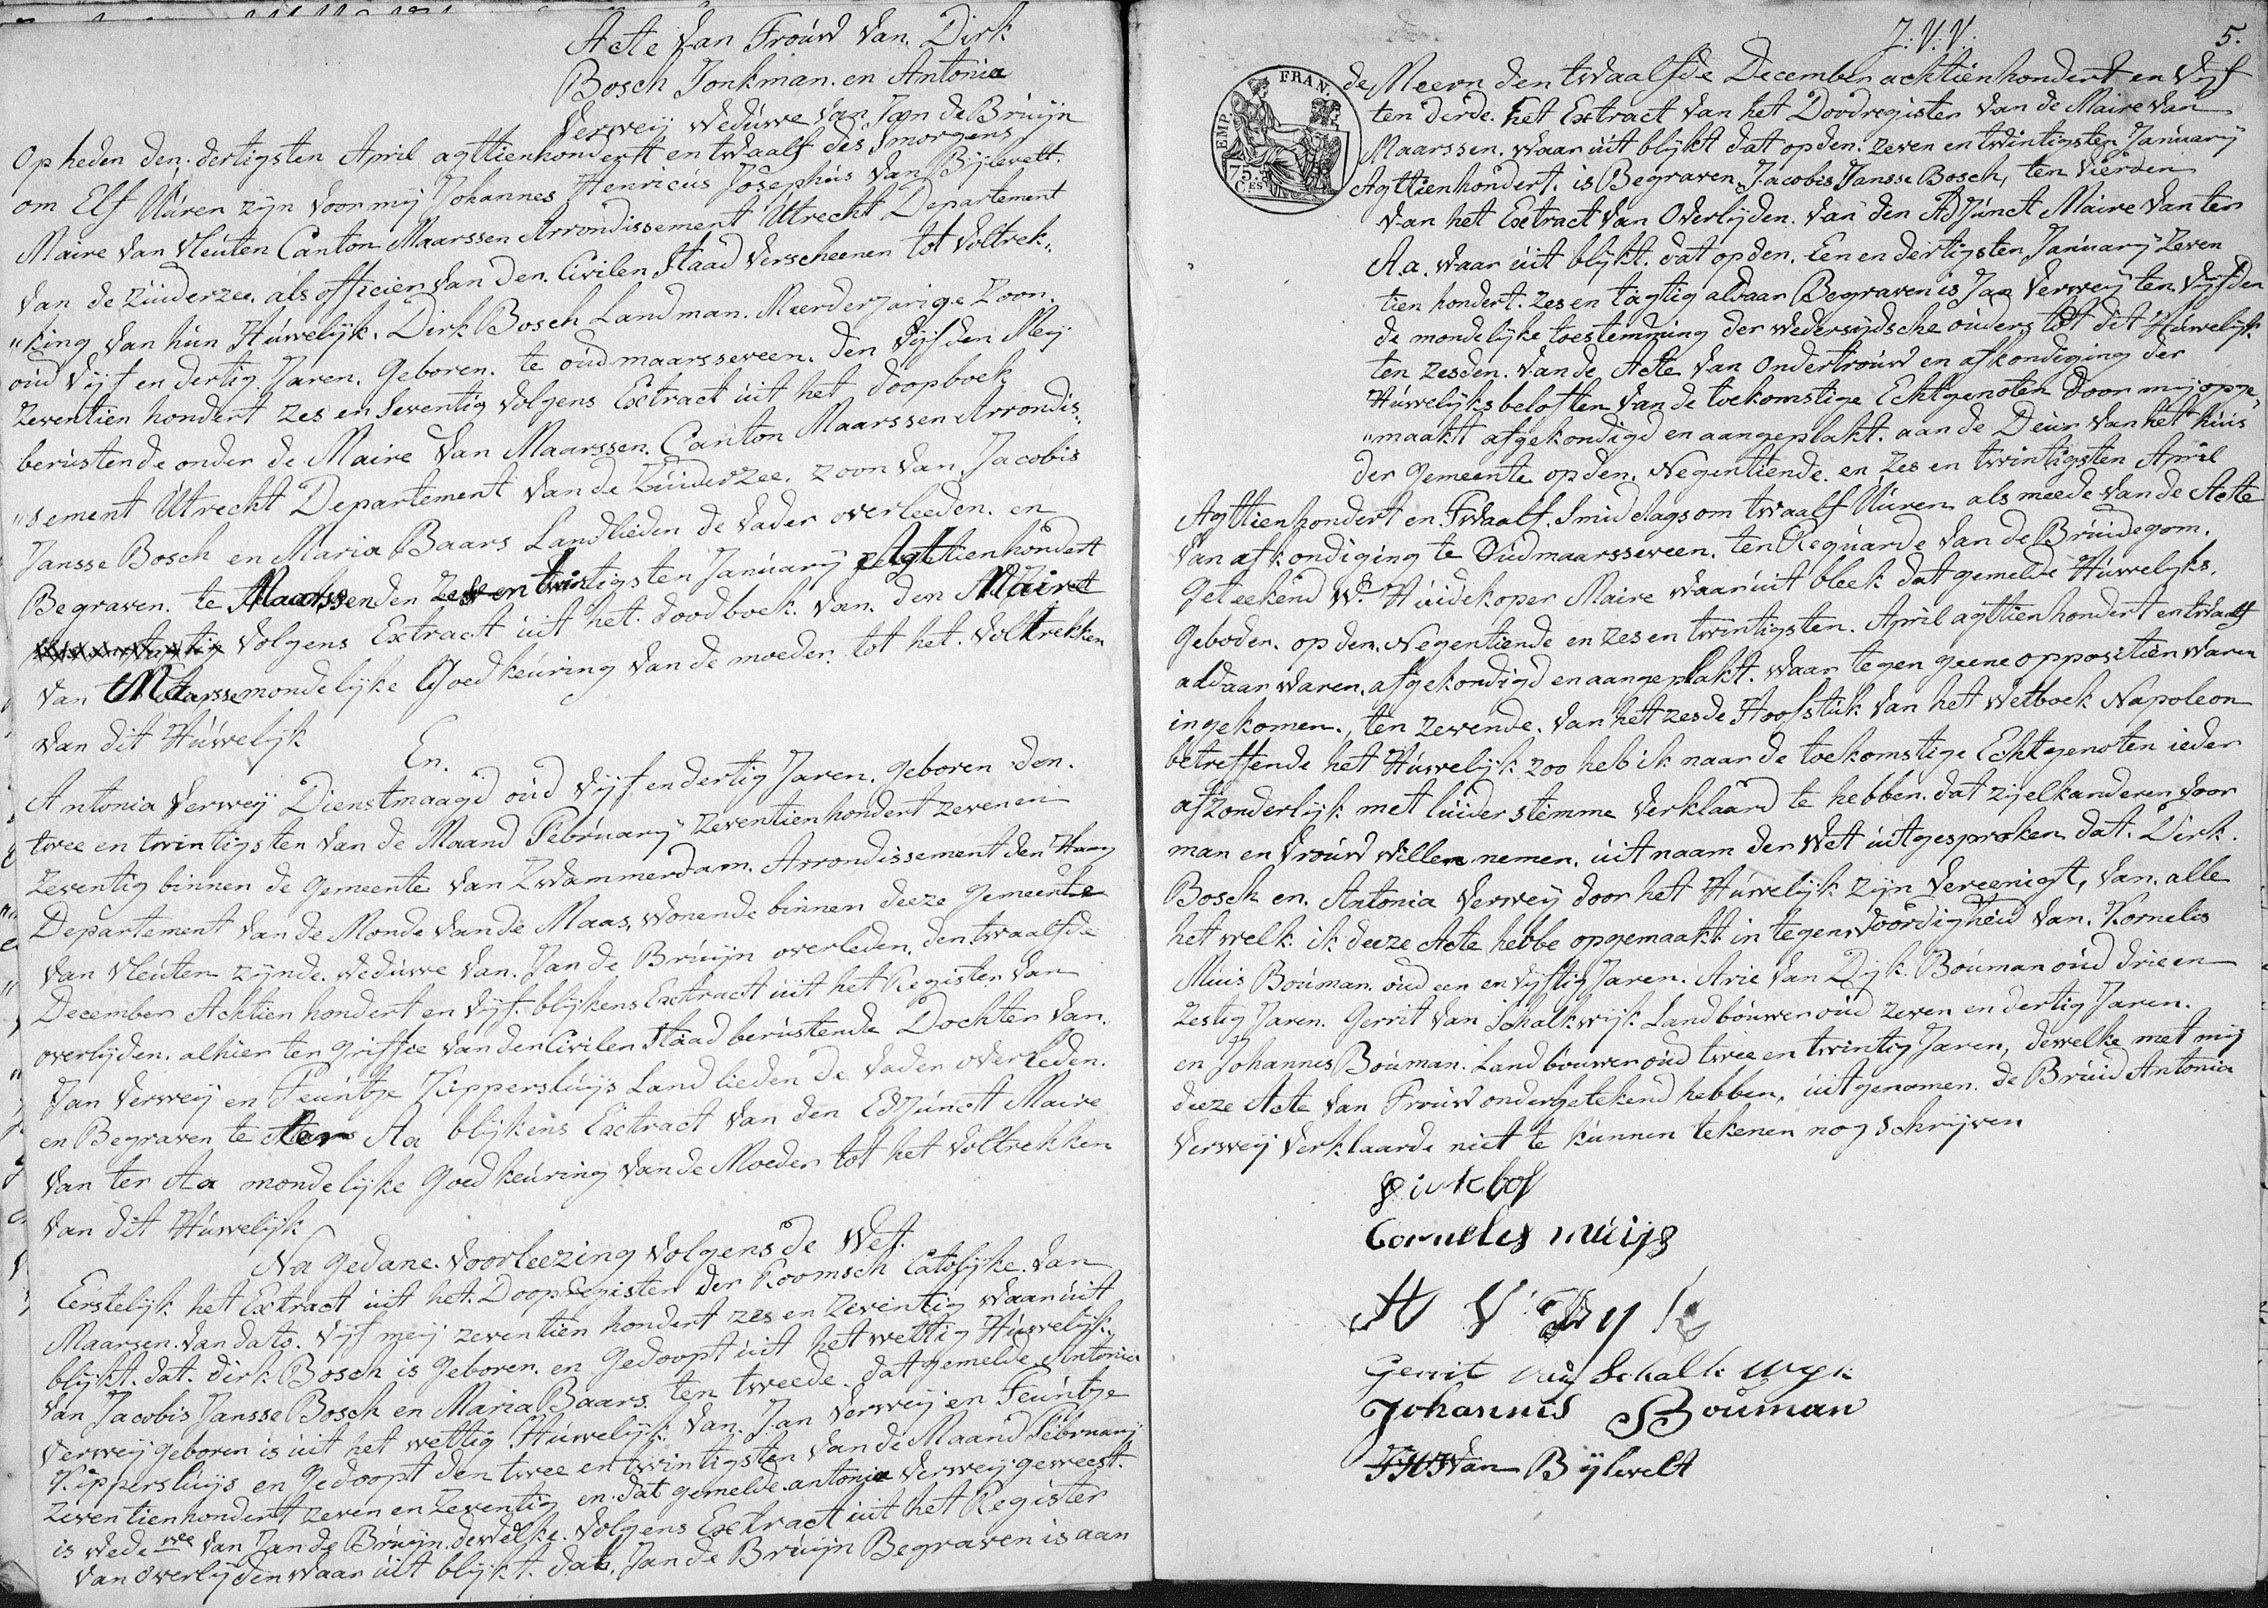 Acte van Trouw van Dirk
Bosch Jonkman en Antonia
Verweij weduwe van Jan de Bruijn
Op heden den dertigsten April agttienhondertt en twaalf des smorgens
om Elf Uuren zijn voor mij Johannes Henricus Josephus van Bijlevelt
Maire van Vleuten Canton Maarssen Arrondissement Utrecht Departement
van de Zuiderzee, als officier van den Civilen Staad verscheenen tot voltrek„
„king van hun Huwelijk, Dirk Bosch Landman Meerderjarige Zoon
oud vijf en dertig Jaren, geboren te oudmaarsseveen den vijfden Meij
zeventien hondert zes en seventig volgens Extract uit het doopboek
berustende onder de Maire van Maarssen Canton Maarssen Arrondis„
„sement Utrecht Departement van de Zuiderzee, zoon van Jacobis
Jansse Bosch en Maria Baars Landlieden de vader overleeden en
Begraven te Maarssen den zeven twintigsten January Agttienhondert
volgens Extract uit het doodboek van den Maire
van Maarsse mondelijke Goedkeuring van de moeder tot het voltrekken
van dit Huwelijk
En
Antonia Verweij Dienstmaagd oud vijf en dertig Jaren, geboren den
twee en twintigsten van de Maand February zeventienhondert zeven en
zeventig binnen de gemeente van Zwammerdam Arrondissement den Haag
Departement van de Monde van de Maas, wonende binnen deeze gemeente
van Vleuten zijnde weduwe van Jan de Bruijn overleden, den twaalfde
December Achtien hondert en vijf blijkens Exctract uit het Register van
overlijden alhier ter griffie van den Civilen Staad berustende Dochter van
Jan Verweij en Teuntje Kippersluijs Landlieden de vader overleden
en Begraven te ter Aa blijkens Exctract van den Adjunct Maire
van ter Aa mondelijke Goedkeuring van de Moeder tot het voltrekken
van dit Huwelijk
Na gedane voorleezing volgens de Wet
Eerstelijk het Extract uit het Doopregister der Roomsch Catolijke van
Maarsen van dato vijf meij zeventien hondert zes en zeventig waar uit
blijkt dat dirk Bosch is geboren en gedoopt uit het wettig Huwelijk
van Jacobis Jansse Bosch en Maria Baars ten tweede dat gemelde Antonia
Verweij geboren is uit het wettig Huwelijk van Jan Verweij en Teuntje
Kippersluijs en Gedoopt den twee en twintigsten van de Maand February
zeventienhondert zeven en zeventig en dat gemelde antonia Verweij geweest
is wedewee van Jan de Bruijn dewelke volgens Exctract uit het Register
van overlijden waar uit blijkt dat Jan de Bruijn Begraven is aan
J: V: V: 5.
EMP. FRAN.
75. Ces
de Meern den twaalfde December achtienhondert en vijf
ten derde het Extract van het Doodregister van de Maire van
Maarssen, waar uit blijkt dat op den zeven en twintigsten January
Agttienhondert is Begraven Jacobis Jansse Bosch, ten vierden
van het Extract van Overlijden van den Adjunct Maire van ter
Aa waar uit blijkt dat op den Een en dertigsten January Zeven
tien hondert zes en tagtig aldaar Begraven is Jan Verweij ten vijfden
de mondelijke toestemming der wedersijdsche ouders tot dit Huwelijk
ten zesden van de Acte van ondertrouw en afkondiging der
Huwelijksbeloften van de toekomstige Echtgenoten door mij opge„
„maakt afgekondigd en aangeplakt aan de Deur van het huis
der gemeente op den Negentiende en zes en twintigsten April
Agttienhondert en Twaalf Smiddags om twaalf Uuren als meede van de Acte
van afkondiging te Oudmaarsseveen ten Requarde van de Bruidegom
geteekend W. Huidekoper Maire waar uit bleek dat gemelde Huwelijks
geboden op den Negentiende en zes en twintigsten April agttienhondert en twaalf
aldaar waren, afgekondigd en aangeplakt waar tegen geene oppositien waren
ingekomen, ten zevende van het zesde Hoofstuk van het Wetboek Napoleon
betreffende het Huwelijk zoo heb ik naar de toekomstige Echtgenoten ieder
afzonderlijk met luider stemme verklaard te hebben dat zij elkanderen voor
man en vrouw willen nemen, uit naam der Wet uitgesproken dat Dirk
Bosch en Antonia Verweij door het Huwelijk zijn vereenigt, van alle
het welk ik deeze Acte hebbe opgemaakt in tegenwoordigheid van Kornelis
Muis Bouman oud een en vijftig Jaren Arie van Dijk Bouman oud drie en
zestig Jaren Gerrit van Schalkwijk Landbouwer oud zeven en dertig Jaren
en Johannes Bouman Landbouwer oud twee en twintig Jaren, dewelke met mij
deeze Acte van Trouw ondergetekend hebben, uitgenomen de Bruid Antonia
Verweij verklaarde niet te kunnen tekenen nog schrijven
Dirk bos
Cornelis muijs
A V Dyk
Gerrit van Schalk wyk
Johannes Bouman
JHJ Van Bijlevelt